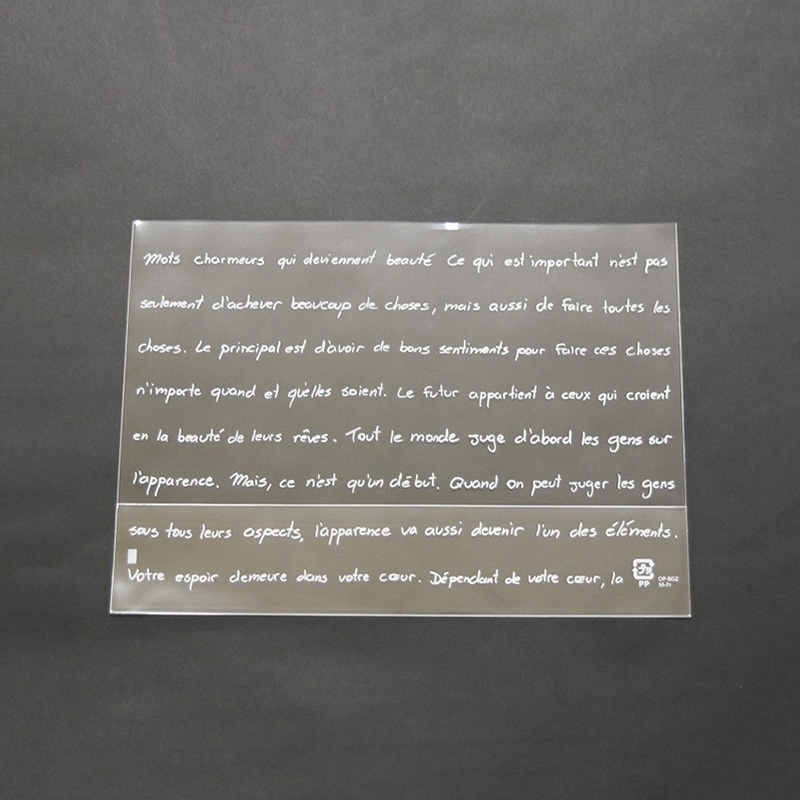 Mots charmeurs qui deviennent beauté Ce qui est important n'est pas
seulement d'achever beaucoup de choses, mais aussi de faire toutes les
choses. Le principal est d'avoir de bons sentiments pour faire ces choses
n'importe quand et quelles soient. Le futur appartient à ceux qui croient
en la beauté de leurs rêves. Tout le monde juge d'abord les gens sur
l'apparence. Mais, ce n'est qu'un début. Quand on peut juger les gens
sous tous leurs aspects, l'apparence va aussi devenir l'un des éléments.
Votre espoir demeure dans votre cœur. Dépendant de votre cœur, la
プラ
PP
OP-BG2
M-Fr